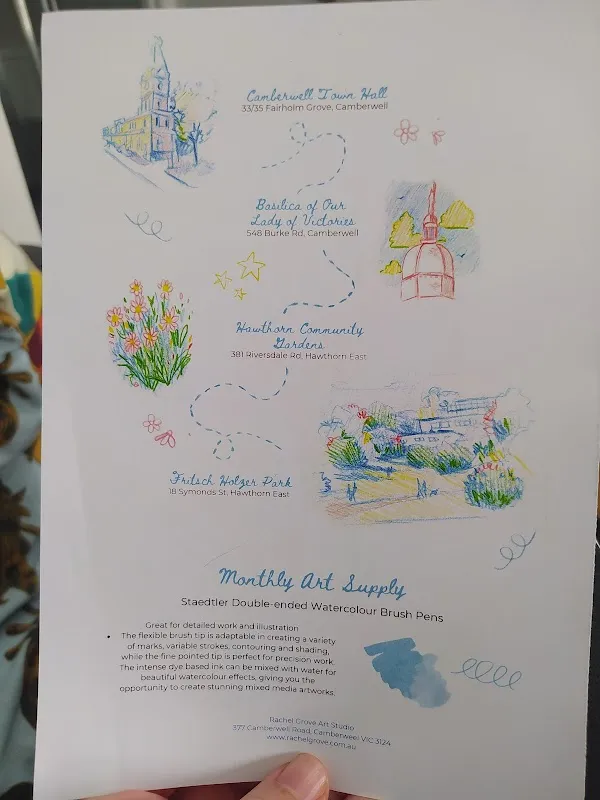 Camberwell Town Hall
33/35 Fairholm Grove, Camberwell
Basilica of Our
Lady of Victories
548 Burke Rd, Camberwell
Hawthorn Community
Gardens
381 Riversdale Rd, Hawthorn East
Fritsch Holzer Park
18 Symonds St, Hawthorn East
Monthly Art Supply
Staedtler Double-ended Watercolour Brush Pens
Great for detailed work and illustration
• The flexible brush tip is adaptable in creating a variety
of marks, variable strokes, contouring and shading,
while the fine pointed tip is perfect for precision work.
The intense dye based ink can be mixed with water for
beautiful watercolour effects, giving you the
opportunity to create stunning mixed media artworks.
Rachel Grove Art Studio
377 Camberwell Road, Camberweel VIC 3124
www.rachelgrove.com.au